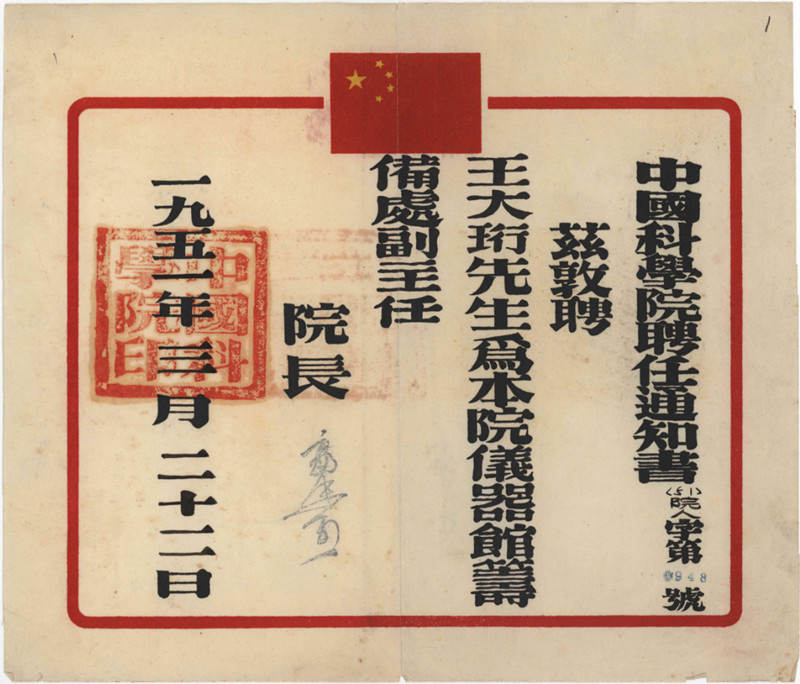 中國科學院聘任通知書(51)院人字第0948號
茲敦聘
王大珩先生爲本院儀器館籌
備處副主任
院長
一九五一年三月二十二日
中國科學院印
1